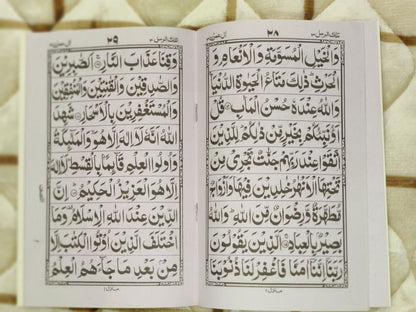 تلك الرسل ٣ ٢٨ اٰل عمرٰن ٣
وَالْخَيْلِ الْمُسَوَّمَةِ وَالْاَنْعَامِ وَ
الْحَرْثِ ذٰلِكَ مَتَاعُ الْحَيٰوةِ الدُّنْيَا
وَاللّٰهُ عِنْدَهٗ حُسْنُ الْمَاٰبِ قُلْ
اَؤُنَبِّئُكُمْ بِخَيْرٍ مِّنْ ذٰلِكُمْ لِلَّذِيْنَ
اتَّقَوْا عِنْدَ رَبِّهِمْ جَنّٰتٌ تَجْرِيْ مِنْ
تَحْتِهَا الْاَنْهٰرُ خٰلِدِيْنَ فِيْهَا وَاَزْوَاجٌ
مُّطَهَّرَةٌ وَّرِضْوَانٌ مِّنَ اللّٰهِ وَاللّٰهُ
بَصِيْرٌۢ بِالْعِبَادِ اَلَّذِيْنَ يَقُوْلُوْنَ
رَبَّنَاۤ اِنَّنَاۤ اٰمَنَّا فَاغْفِرْ لَنَا ذُنُوْبَنَا
منزل ١
تلك الرسل ٣ ٢٩ اٰل عمرٰن ٣
وَقِنَا عَذَابَ النَّارِ اَلصّٰبِرِيْنَ
وَالصّٰدِقِيْنَ وَالْقٰنِتِيْنَ وَالْمُنْفِقِيْنَ
وَالْمُسْتَغْفِرِيْنَ بِالْاَسْحَارِ شَهِدَ
اللّٰهُ اَنَّهٗ لَاۤ اِلٰهَ اِلَّا هُوَ وَالْمَلٰٓئِكَةُ
وَاُولُوا الْعِلْمِ قَآئِمًاۢ بِالْقِسْطِ لَاۤ اِلٰهَ
اِلَّا هُوَ الْعَزِيْزُ الْحَكِيْمُ اِنَّ
الدِّيْنَ عِنْدَ اللّٰهِ الْاِسْلَامُ وَمَا
اخْتَلَفَ الَّذِيْنَ اُوْتُوا الْكِتٰبَ اِلَّا
مِنْۢ بَعْدِ مَا جَآءَهُمُ الْعِلْمُ
منزل ١